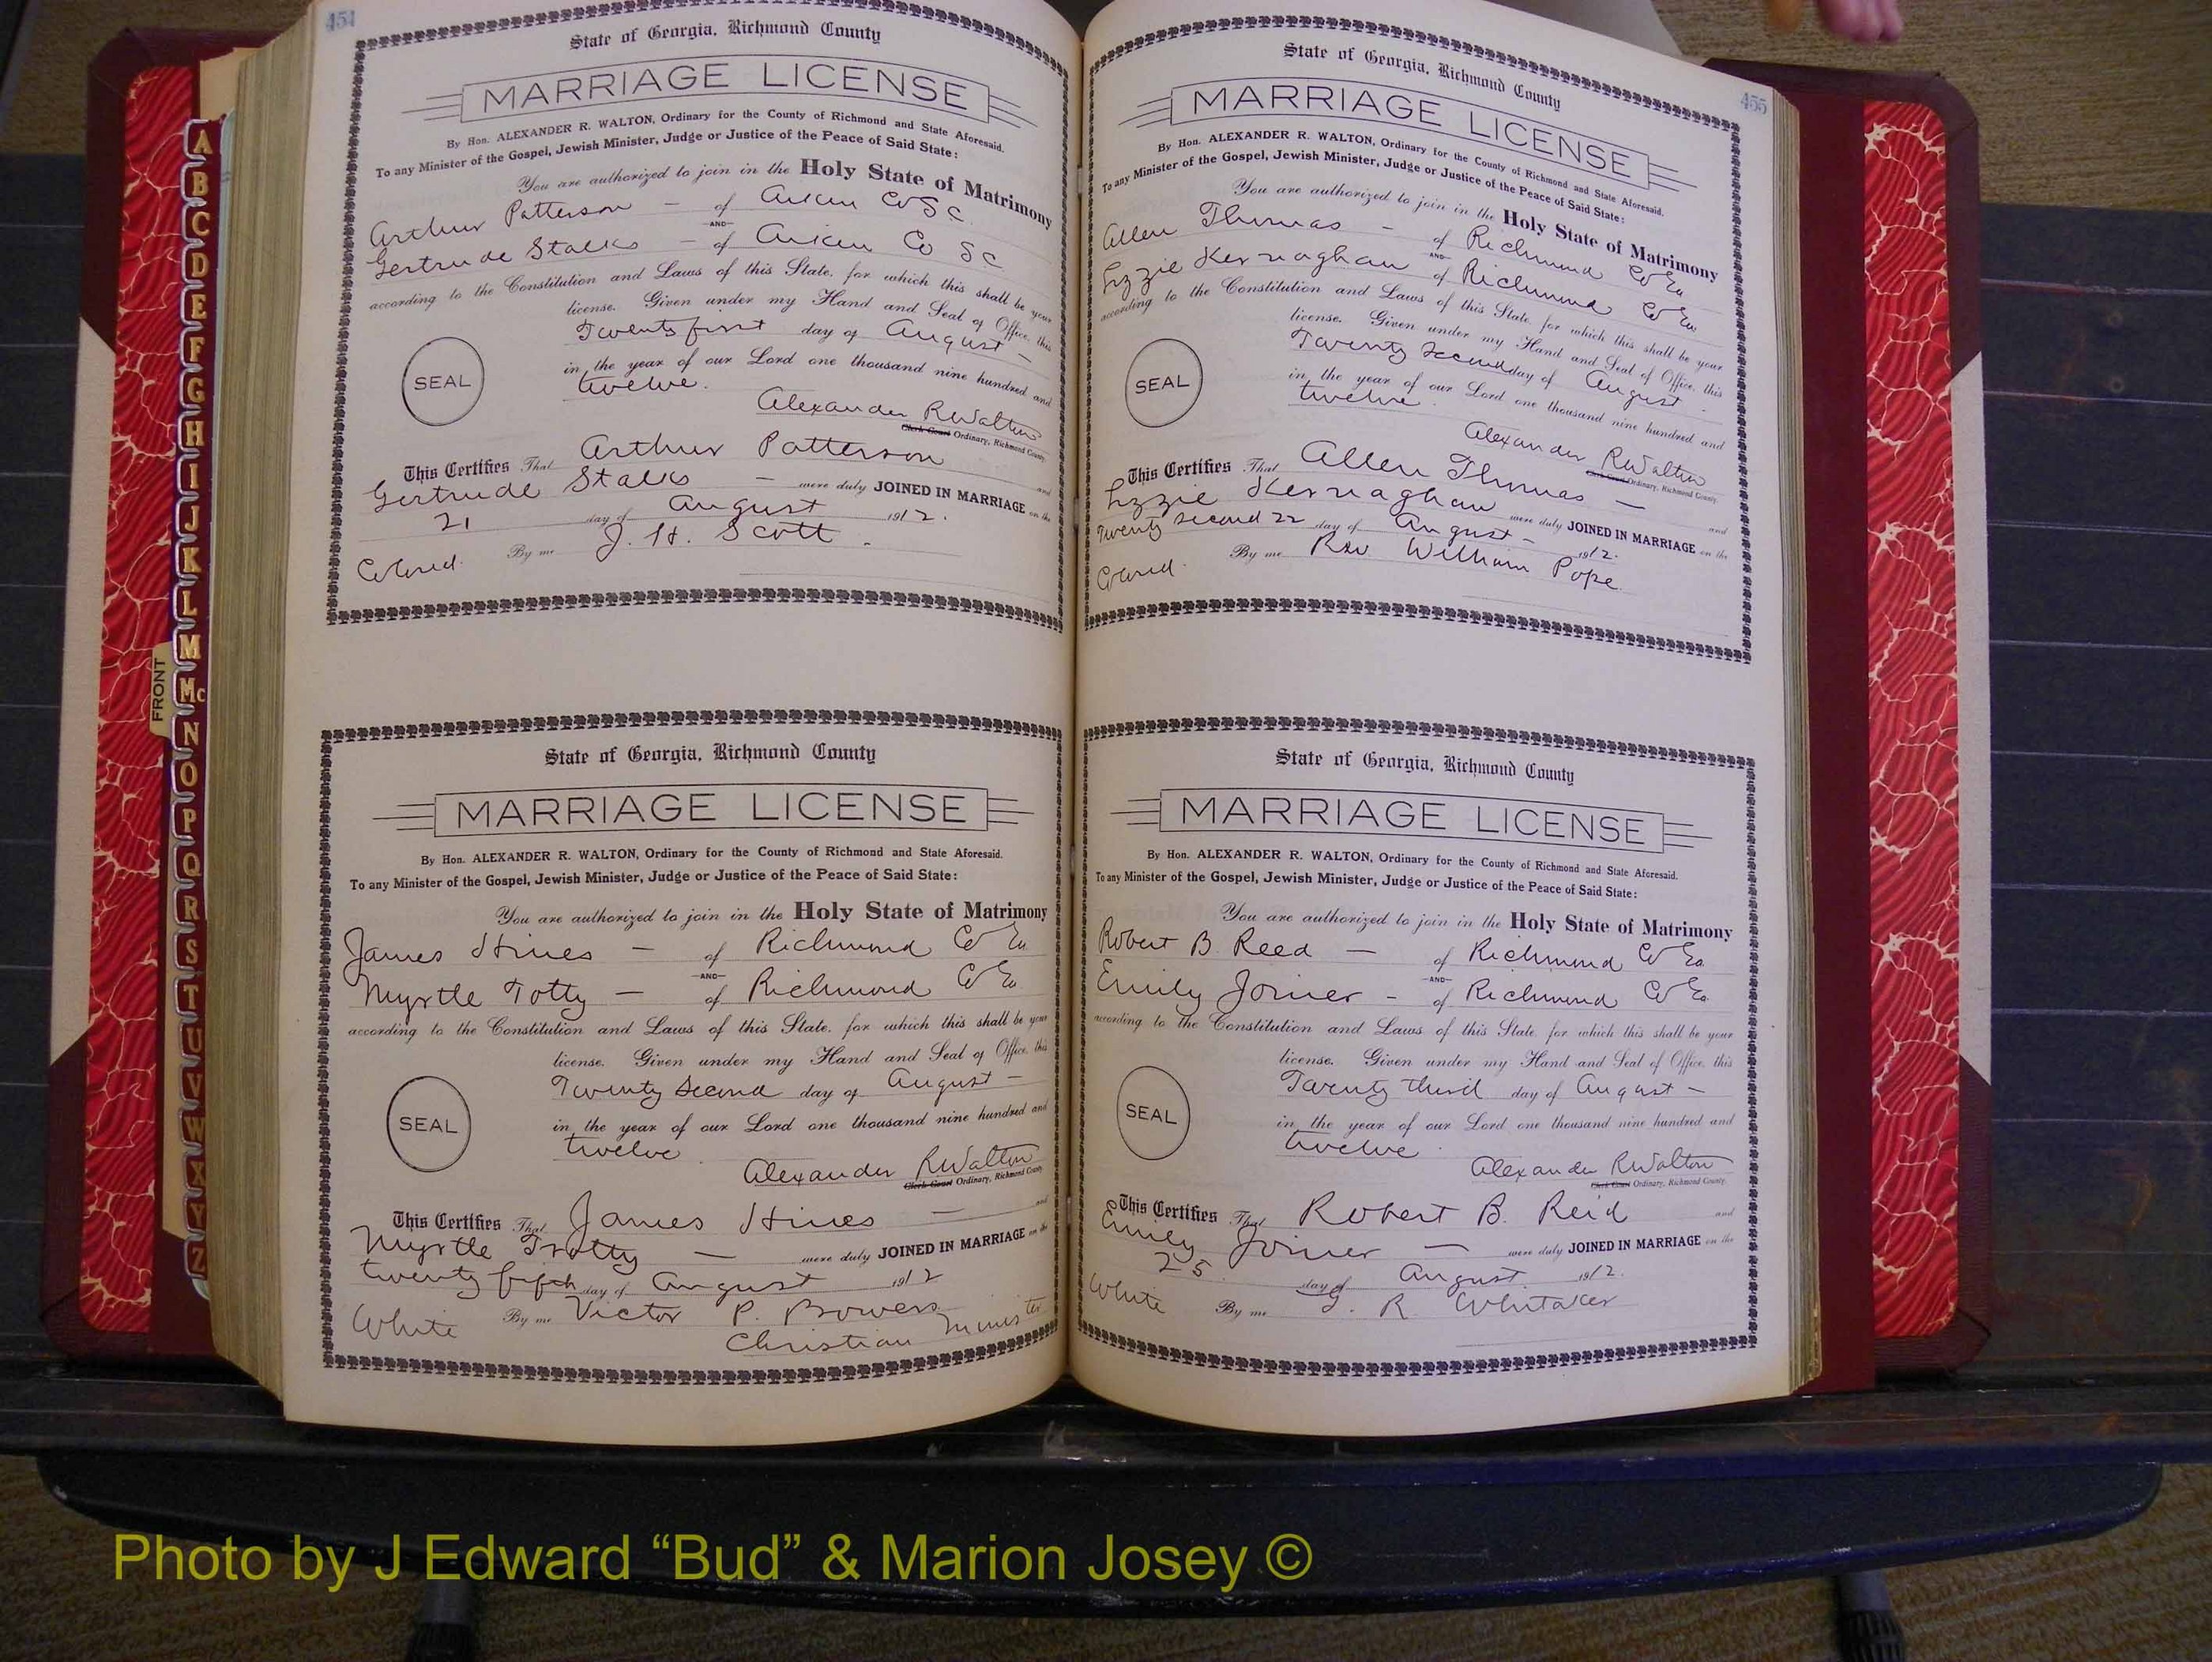 454
State of Georgia, Richmond County
MARRIAGE LICENSE
By Hon. ALEXANDER R. WALTON, Ordinary for the County of Richmond and State Aforesaid.
To any Minister of the Gospel, Jewish Minister, Judge or Justice of the Peace of Said State:
You are authorized to join in the Holy State of Matrimony
Arthur Patterson - of Aiken Co S C
AND
Gertrude Stalks - of Aiken Co S C
according to the Constitution and Laws of this State, for which this shall be your
license. Given under my Hand and Seal of Office, this
Twenty first day of August -
in the year of our Lord one thousand nine hundred and
twelve.
SEAL
Alexander R Walton
Clerk Court Ordinary, Richmond County
This Certifies That Arthur Patterson and
Gertrude Stalks - were duly JOINED IN MARRIAGE on the
21 day of August 1912.
Colored. By me J. H. Scott -
State of Georgia, Richmond County
MARRIAGE LICENSE
By Hon. ALEXANDER R. WALTON, Ordinary for the County of Richmond and State Aforesaid.
To any Minister of the Gospel, Jewish Minister, Judge or Justice of the Peace of Said State:
You are authorized to join in the Holy State of Matrimony
James Hines - of Richmond Co Ga
AND
Myrtle Totty - of Richmond Co Ga
according to the Constitution and Laws of this State, for which this shall be your
license. Given under my Hand and Seal of Office, this
Twenty second day of August -
in the year of our Lord one thousand nine hundred and
twelve
SEAL
Alexander R Walton
Clerk Court Ordinary, Richmond County
This Certifies That James Hines - and
Myrtle Trotty - were duly JOINED IN MARRIAGE on the
twenty fifth day of August 1912
White By me Victor P. Bowers
Christian Minister
455
State of Georgia, Richmond County
MARRIAGE LICENSE
By Hon. ALEXANDER R. WALTON, Ordinary for the County of Richmond and State Aforesaid.
To any Minister of the Gospel, Jewish Minister, Judge or Justice of the Peace of Said State:
You are authorized to join in the Holy State of Matrimony
Allen Thomas - of Richmond Co Ga
AND
Lizzie Kernaghan of Richmond Co Ga
according to the Constitution and Laws of this State, for which this shall be your
license. Given under my Hand and Seal of Office, this
Twenty second day of August -
in the year of our Lord one thousand nine hundred and
twelve.
SEAL
Alexander R Walton
Clerk Court Ordinary, Richmond County
This Certifies That Allen Thomas - and
Lizzie Kernaghan were duly JOINED IN MARRIAGE on the
Twenty second 22 day of August - 1912.
Colored. By me Rev William Pope
State of Georgia, Richmond County
MARRIAGE LICENSE
By Hon. ALEXANDER R. WALTON, Ordinary for the County of Richmond and State Aforesaid.
To any Minister of the Gospel, Jewish Minister, Judge or Justice of the Peace of Said State:
You are authorized to join in the Holy State of Matrimony
Robert B. Reed - of Richmond Co Ga
AND
Emily Joiner - of Richmond Co Ga
according to the Constitution and Laws of this State, for which this shall be your
license. Given under my Hand and Seal of Office, this
Twenty third day of August -
in the year of our Lord one thousand nine hundred and
twelve.
SEAL
Alexander R Walton
Clerk Court Ordinary, Richmond County
This Certifies That Robert B. Reid and
Emily Joiner - were duly JOINED IN MARRIAGE on the
25 day of August 1912.
White By me G. R. Whitaker
A
B
C
D
E
F
G
H
I
J
K
L
M
Mc
N
O
P
Q
R
S
T
U
V
W
X
Y
Z
FRONT
Photo by J Edward “Bud” & Marion Josey ©